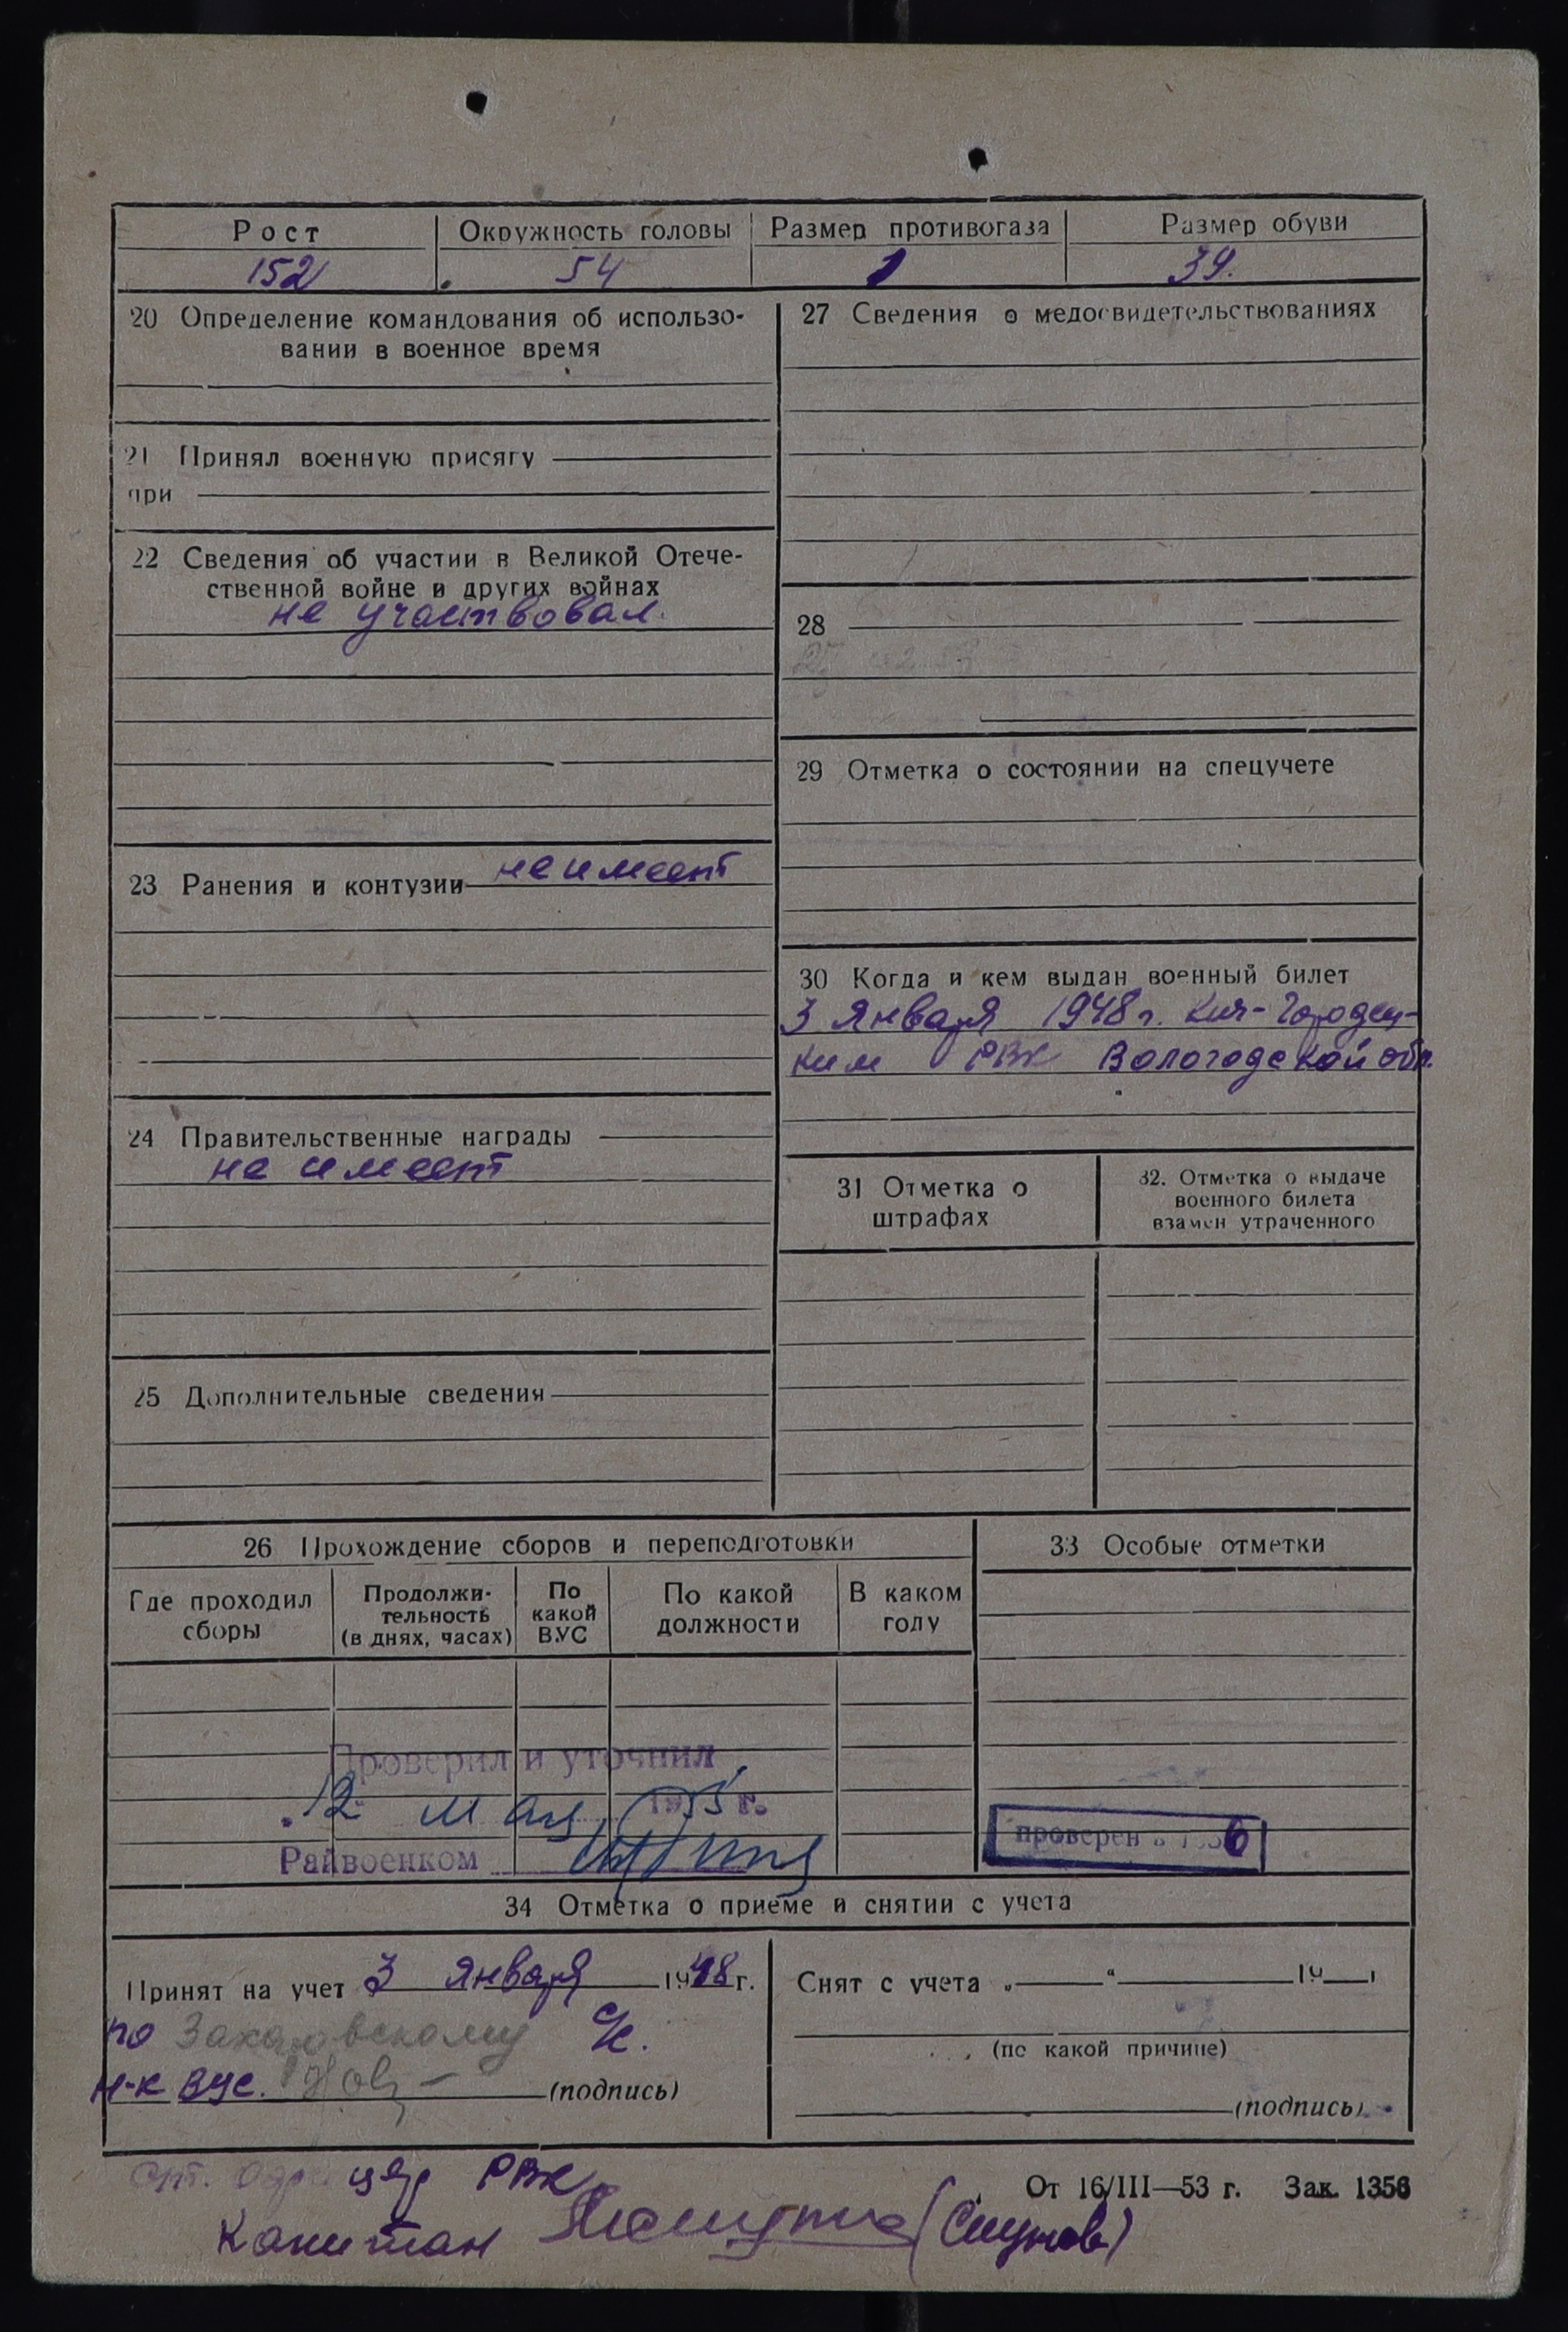 Рост Окружность головы Размер противогаза Размер обуви
152 54 1 39.
20 Определение командования об использо-
вании в военное время
21 Принял военную присягу
при
22 Сведения об участии в Великой Отече-
ственной войне и других войнах
не участвовал.
23 Ранения и контузии не имеет
24 Правительственные награды
не имеет
25 Дополнительные сведения
27 Сведения о медосвидетельствованиях
28
29 Отметка о состоянии на спецучете
30 Когда и кем выдан военный билет
3 Января 1948 г. Кич-Городец-
ким РВК Вологодской обл.
31 Отметка о
штрафах
32. Отметка о выдаче
военного билета
взамен утраченного
26 Прохождение сборов и переподготовки
Где проходил
сборы
Продолжи-
тельность
(в днях, часах)
По
какой
ВУС
По какой
должности
В каком
году
Проверил и уточнил
12 195 г.
Райвоенком
33 Особые отметки
проверен в 1956
34 Отметка о приеме и снятии с учета
Принят на учет 3 Января 1948 г.
по Захаровскому с/с.
н-к ВУС. (подпись)
Снят с учета „ “ 19 г
(по какой причине)
(подпись)
РВК
Капитан (Смирнов)
От 16/III—53 г. Зак. 1356